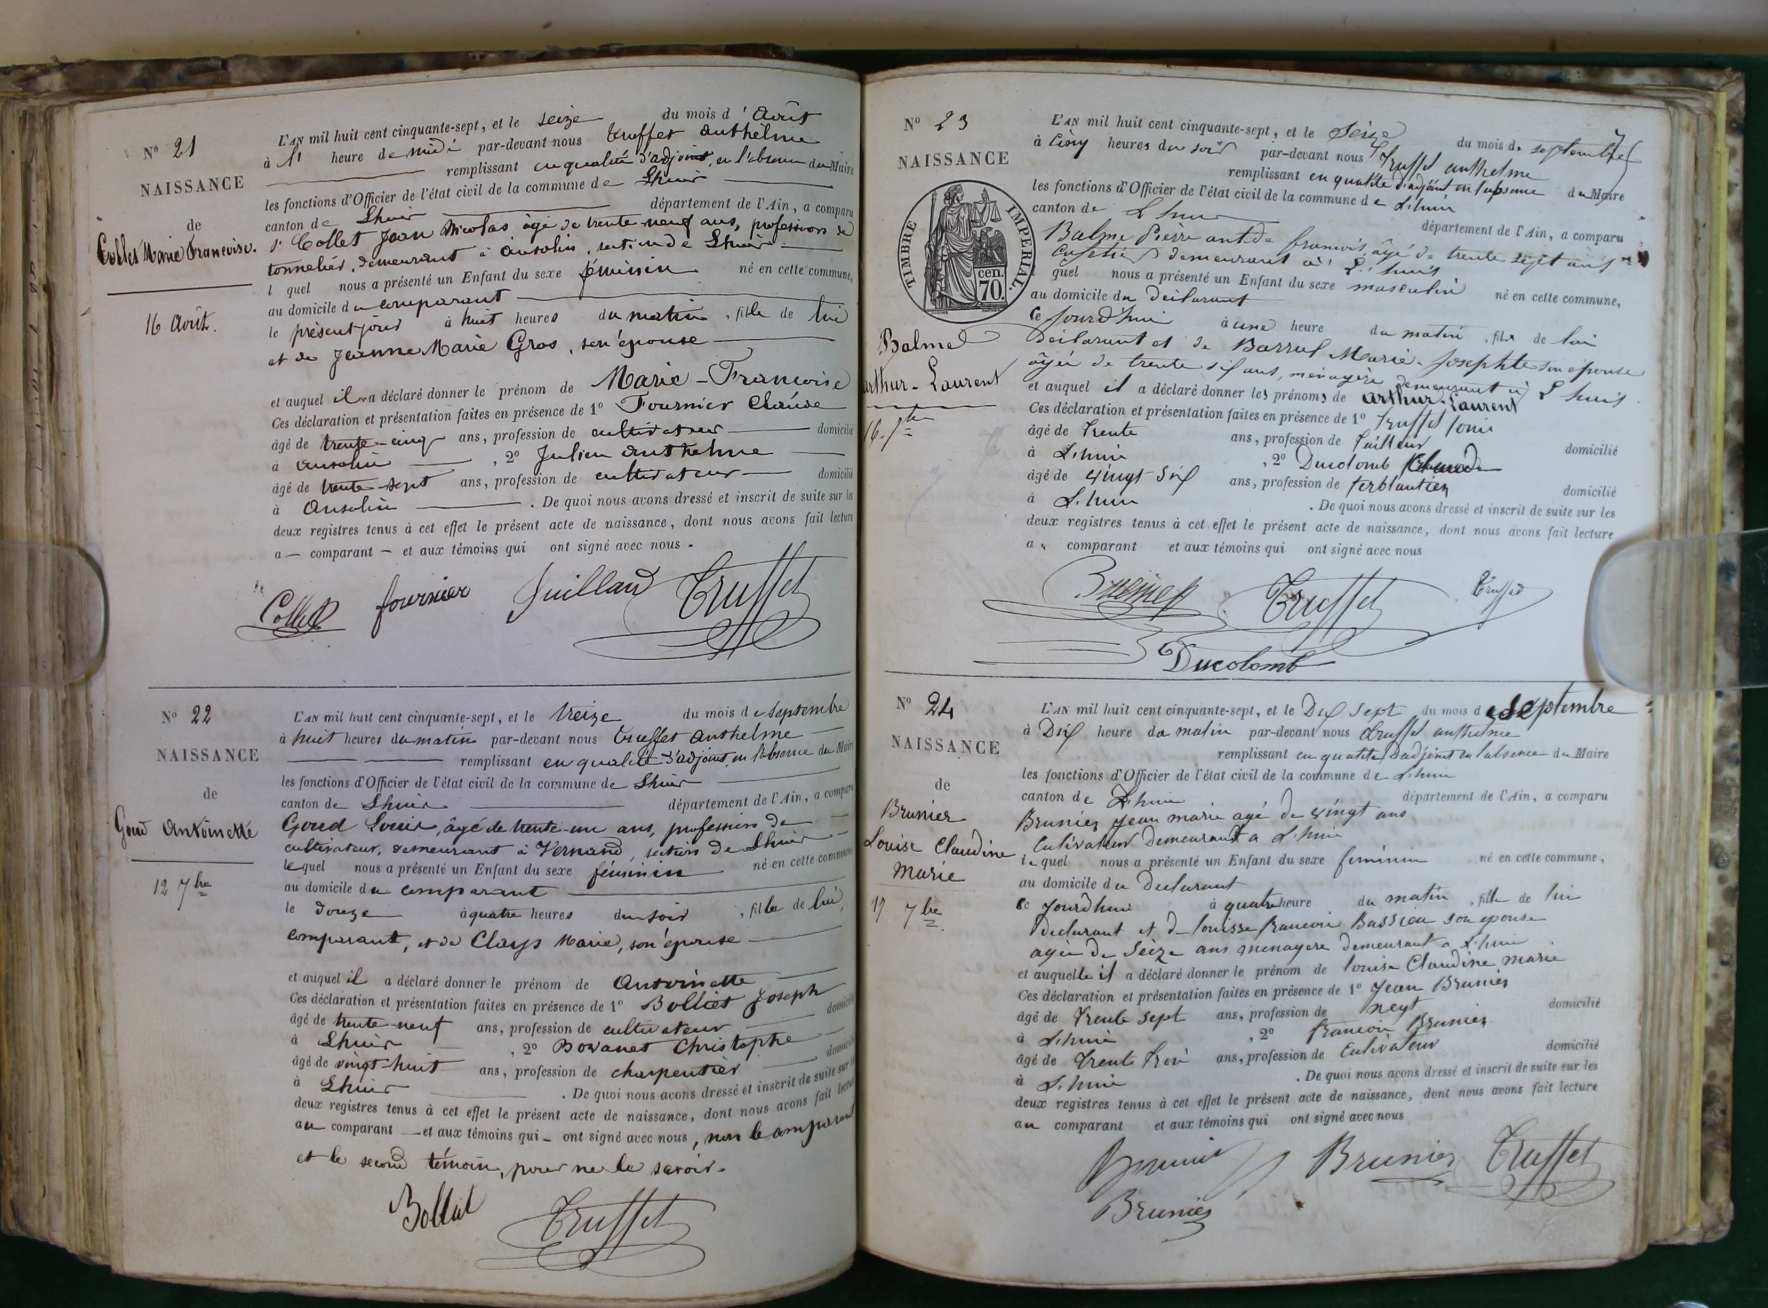 N° 21
NAISSANCE
de
Collet Marie Francoise.
16 Août.
L'AN mil huit cent cinquante-sept, et le seize du mois d'Août
à 11 heure de midi par-devant nous Truffet Anthelme
remplissant en qualité d'adjoint, en l'absence du Maire
les fonctions d'Officier de l'état civil de la commune de Lhuis
canton de Lhuis département de l'Ain, a comparu
sr Collet Jean Nicolas, âgé de trente-neuf ans, profession de
tonnelier, demeurant à Ansolin, section de Lhuis
l quel nous a présenté un Enfant du sexe féminin né en cette commune,
au domicile du comparant
le présent jour à huit heures du matin, fille de lui
et de Jeanne Marie Gros, son épouse
et auquel il a déclaré donner le prénom de Marie-Francoise
Ces déclaration et présentation faites en présence de 1° Fournier Claude
âgé de trente-cinq ans, profession de cultivateur domicilié
à Ansolin, 2° Julien Anthelme
âgé de trente-sept ans, profession de cultivateur domicilié
à Ansolin. De quoi nous avons dressé et inscrit de suite sur les
deux registres tenus à cet effet le présent acte de naissance, dont nous avons fait lecture
a — comparant — et aux témoins qui ont signé avec nous.
Collet fournier Juilland Truffet
N° 22
NAISSANCE
de
Goud Antoinette
12 7bre
L'AN mil huit cent cinquante-sept, et le treize du mois de Septembre
à huit heures du matin par-devant nous Truffet Anthelme
remplissant en qualité d'adjoint, en l'absence du Maire
les fonctions d'Officier de l'état civil de la commune de Lhuis
canton de Lhuis département de l'Ain, a comparu
Goud Louis, âgé de trente-un ans, profession de
cultivateur, demeurant à Vernand, section de Lhuis
lequel nous a présenté un Enfant du sexe féminin né en cette commune
au domicile du comparant
le douze à quatre heures du soir, fille de lui,
comparant, et de Clays Marie, son épouse
et auquel il a déclaré donner le prénom de Antoinette
Ces déclaration et présentation faites en présence de 1° Bolliet Joseph
âgé de trente-neuf ans, profession de cultivateur domicilié
à Lhuis, 2° Bovanet Christophe
âgé de vingt-huit ans, profession de charpentier domicilié
à Lhuis. De quoi nous avons dressé et inscrit de suite sur
deux registres tenus à cet effet le présent acte de naissance, dont nous avons fait lecture
au comparant — et aux témoins qui — ont signé avec nous, non le comparant
et le second témoin, pour ne le savoir.
Bolliet Truffet
N° 23
NAISSANCE
TIMBRE IMPERIAL.
70. cen.
Balme
arthur-Laurent
16. 7bre
L'AN mil huit cent cinquante-sept, et le Seize du mois de septembre
à Cinq heures du soir par-devant nous Truffet anthelme
remplissant en qualité d'adjoint en l'absence du Maire
les fonctions d'Officier de l'état civil de la commune de L'huis
canton de L huis département de l'Ain, a comparu
Balme Pierre ant. de francois âgé de trente sept ans
demeurant à L'huis
quel nous a présenté un Enfant du sexe masculin né en cette commune,
au domicile du déclarant
Ce jourd'hui à une heure du matin, fils de lui
déclarant et de Barral Marie-Josephte son épouse
âgée de trente six ans, ménagère demeurant à L huis.
et auquel il a déclaré donner les prénoms de arthur-Laurent
Ces déclaration et présentation faites en présence de 1° Truffet
âgé de trente ans, profession de Tailleur domicilié
à L.huis, 2° Ducolomb Claude
âgé de vingt six ans, profession de ferblantier domicilié
à L.huis. De quoi nous avons dressé et inscrit de suite sur les
deux registres tenus à cet effet le présent acte de naissance, dont nous avons fait lecture
a. comparant et aux témoins qui ont signé avec nous
Truffet Truffet
Ducolomb
N° 24
NAISSANCE
de
Brunier
Louise Claudine
Marie
17 7bre
L'AN mil huit cent cinquante-sept, et le Dix Sept du mois de Septembre
à Dix heure du matin par-devant nous Truffet anthelme
remplissant en qualité d'adjoint en l'absence du Maire
les fonctions d'Officier de l'état civil de la commune de L'huis
canton de L'huis département de l'Ain, a comparu
Brunier Jean Marie agé de vingt ans
Cultivateur demeurant a L'huis
lequel nous a présenté un Enfant du sexe feminin né en cette commune,
au domicile du Declarant
ce jourdhui à quatre heure du matin, fille de lui
declarant et de louise francoise Bassieu son epouse
agée de Seize ans menagere demeurant a L'huis
et auquelle il a déclaré donner le prénom de louise Claudine marie
Ces déclaration et présentation faites en présence de 1° Jean Brunier
âgé de Trente sept ans, profession de domicilié
à L'huis, 2° francois Brunier
âgé de trente trois ans, profession de Cultivateur domicilié
à L'huis. De quoi nous avons dressé et inscrit de suite sur les
deux registres tenus à cet effet le présent acte de naissance, dont nous avons fait lecture
au comparant et aux témoins qui ont signé avec nous
Brunier Brunier Truffet
Brunier